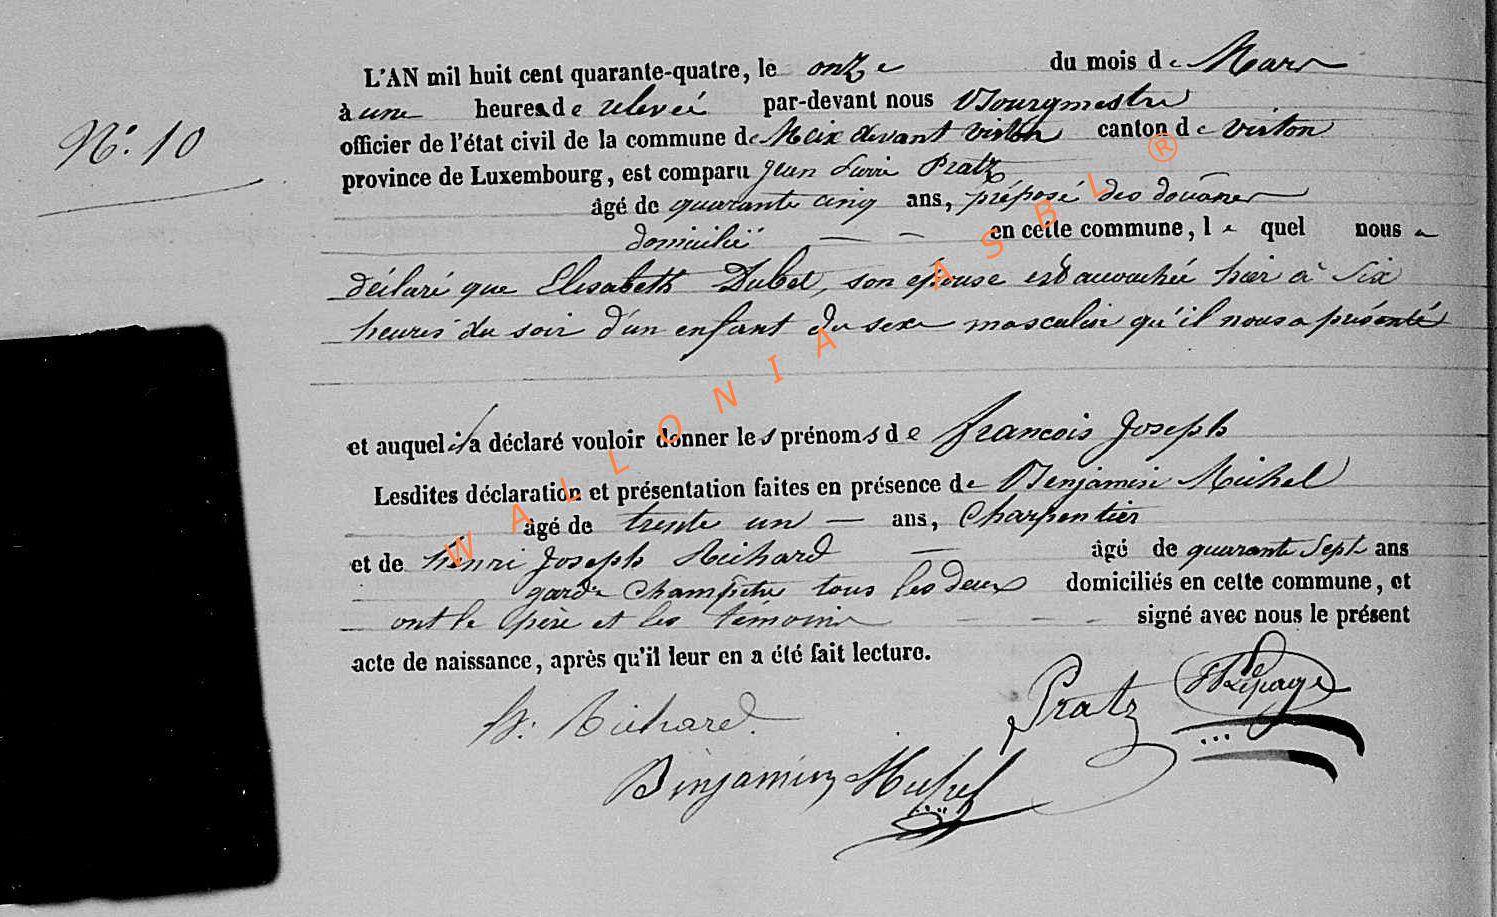 L'AN mil huit cent quarante-quatre, le onze du mois de Mars
N.° 10
à une heure de relevée par-devant nous Bourgmestre
officier de l'état civil de la commune de Meix devant virton canton de virton
province de Luxembourg, est comparu Jean Pierre Pratz
âgé de quarante cinq ans, préposé des douânes
domicilié en cette commune, lequel nous a
déclaré que Elisabeth Dubet, son epouse est accouchée hier à Six
heures du soir d'un enfant du sexe masculin qu'il nous a présenté
et auquel il a déclaré vouloir donner les prénoms de françois Joseph
Lesdites déclaration et présentation faites en présence de Benjamin Michel
âgé de trente un ans, Charpentier
et de henri Joseph Richard âgé de quarante Sept ans
garde Champêtre tous les deux domiciliés en cette commune, et
ont le père et les témoins signé avec nous le présent
acte de naissance, après qu'il leur en a été fait lecture.
h. Richard. Pratz Lepage
Binjamin Michel
WALLONIA ASBL ®